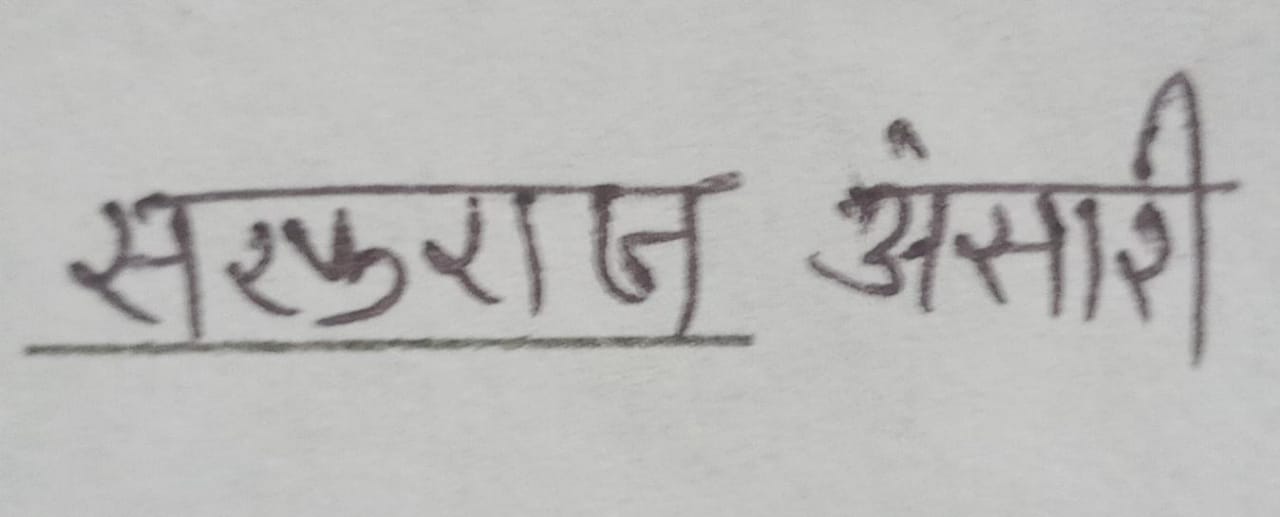 सरफराज अंसारी